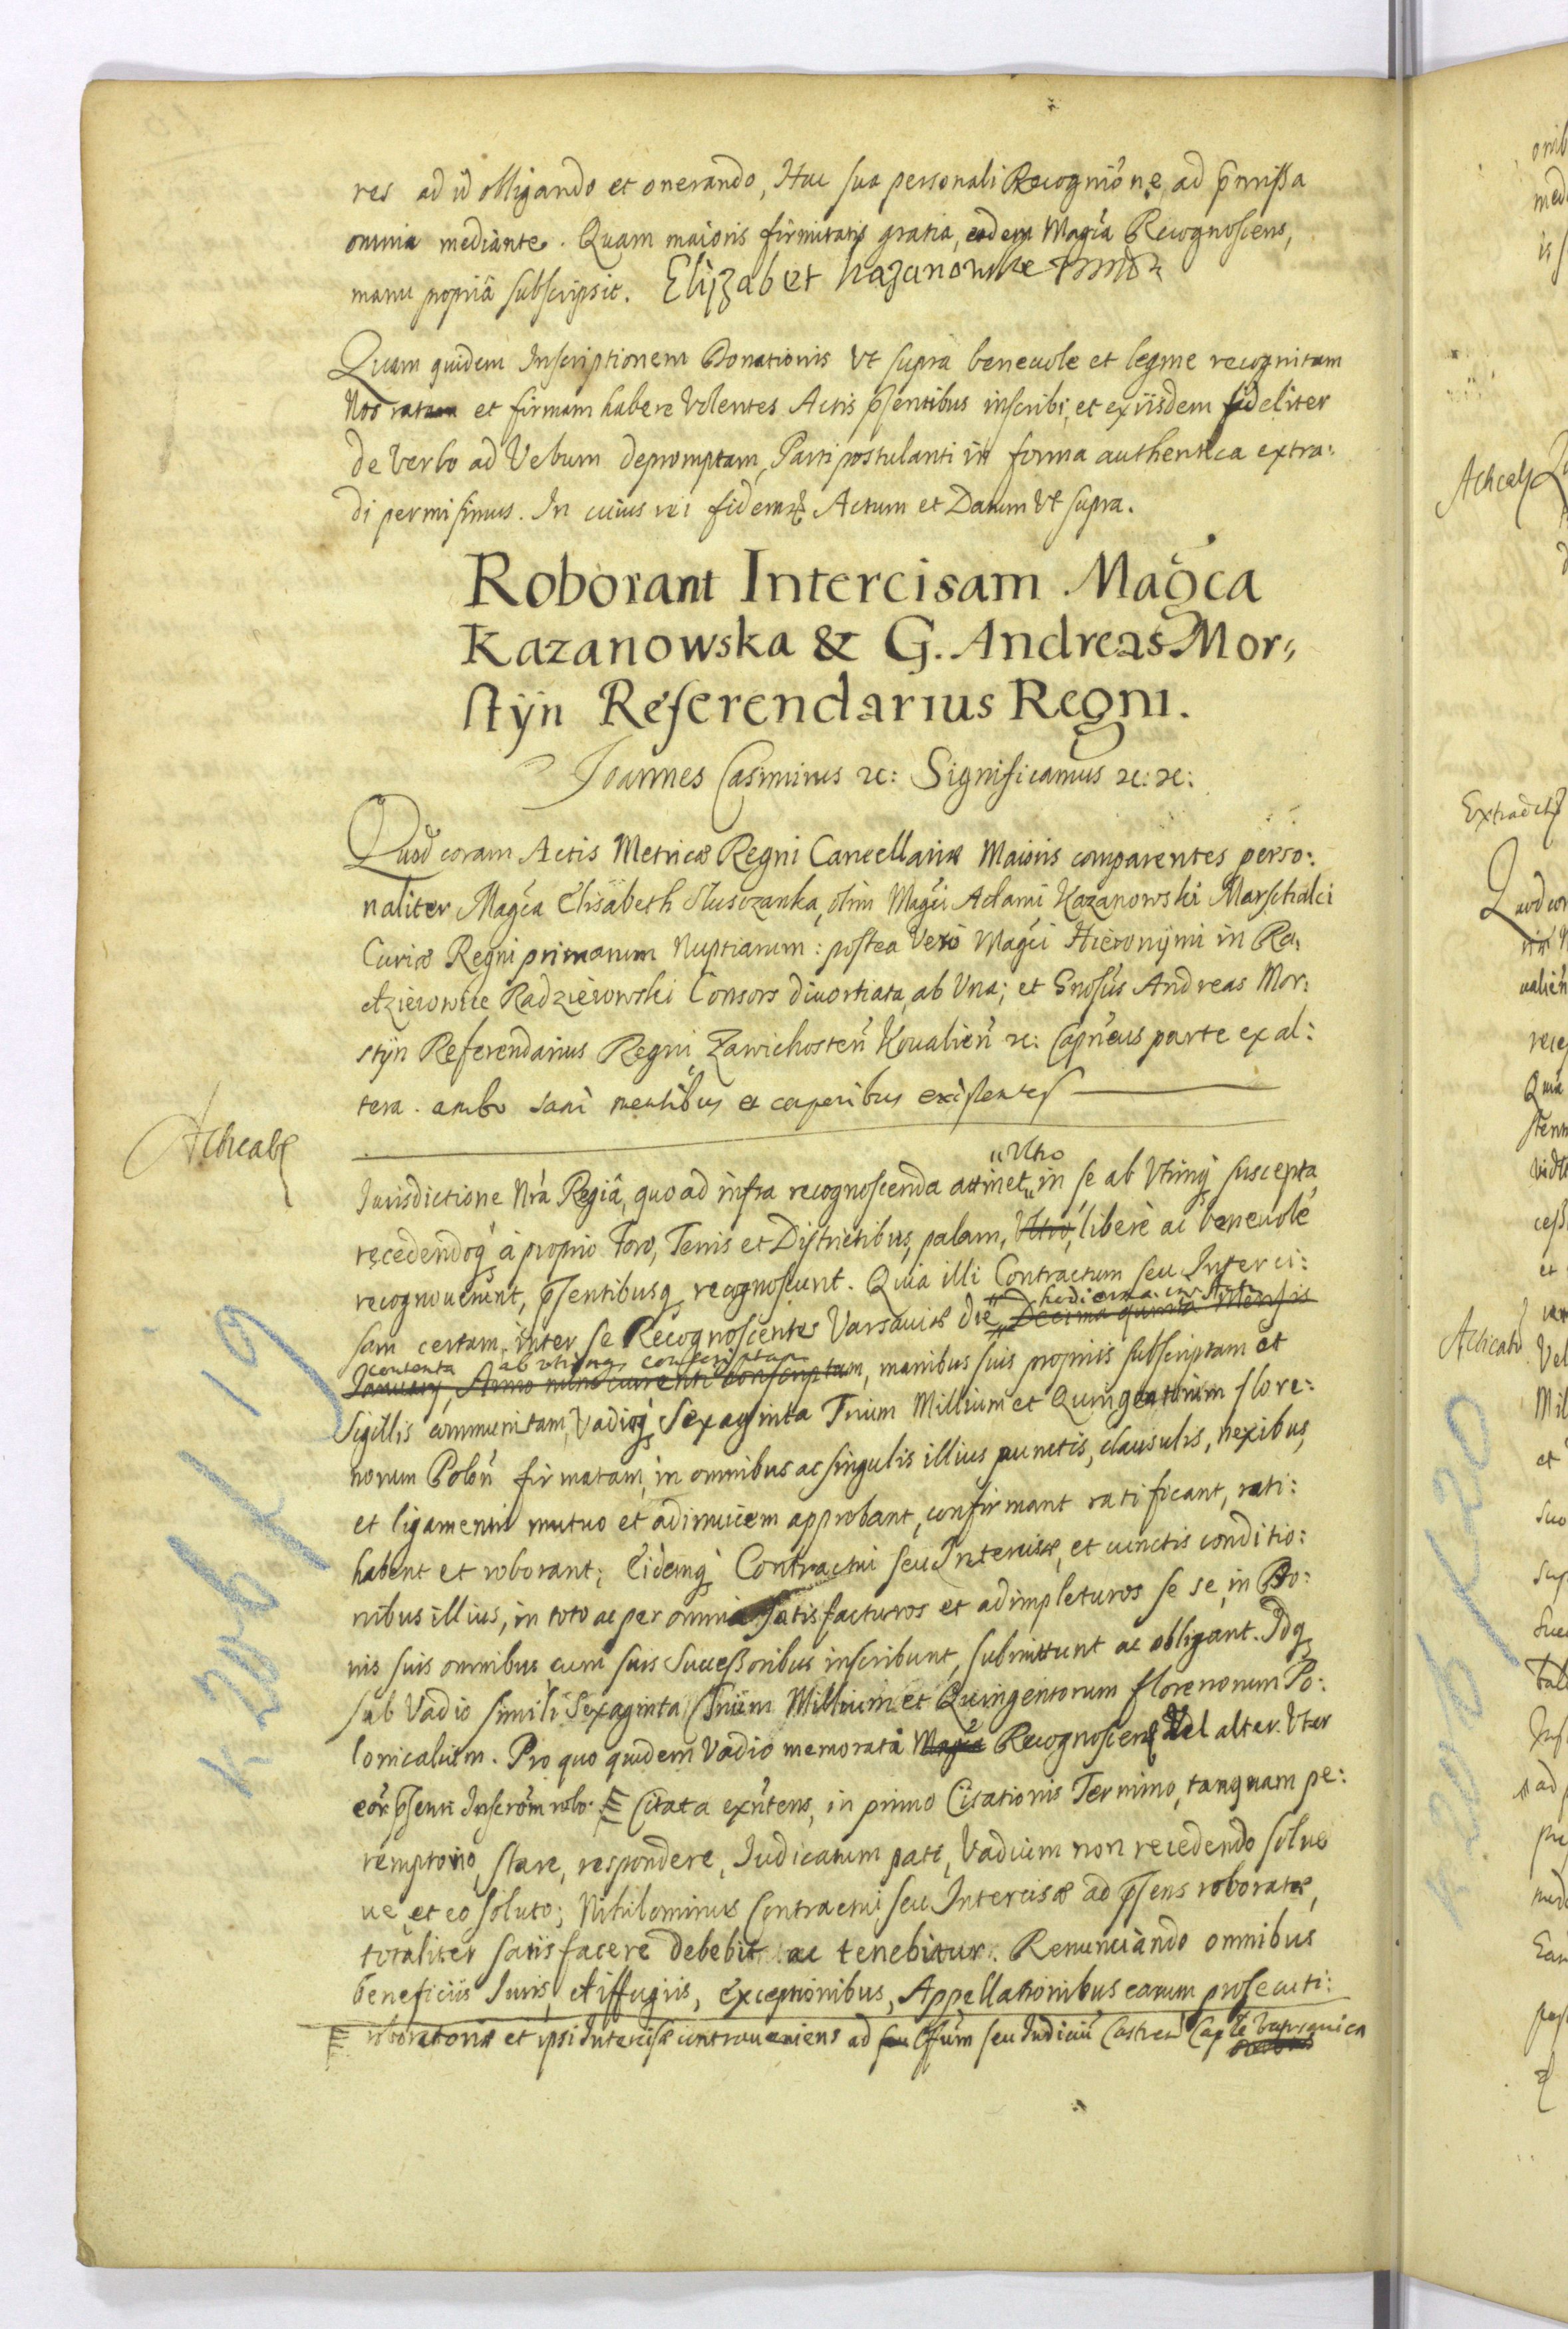 res ad id obligando et onerando, Hac sua personali Recogniõne, ad pmissa
omnia mediante. Quam maioris firmitatis gratia, eadem Magca Recognoscens,
manu propriâ subscripsit. Elijzabet kazanowske
Quam quidem Inscriptionem Donationis Vt supra beneuole et legme recognitam
Nos ratam et firmam habere Volentes Actis psentibus inscribi, et exiisdem fideliter
de Verbo ad Vebum depromptam, Parti postulanti in forma authentica extra:
di permisimus. In cuius rei fidem Actum et Datum Vt supra.
Roborant Intercisam Magca
Kazanowska & G. Andreas Mor:
stÿn Referendarius Regni.
Joannes Casimirus &c: Significamus &c: &c:
Quod coram Actis Metricæ Regni Cancellariæ Maioris comparentes perso:
naliter Magca Elisabeth Sluszanka, olim Magci Adami Kazanowski Marschalci
Curiæ Regni primarum Nuptiarum: postea Vero Magci Hieronÿmi in Ra:
dzieiowice Radzieiowski Consors diuortiata, ab Vna; et Gnosus Andreas Mor:
stÿn Referendarius Regni, Zawichosteñ Koualieñ &c: Capneus parte ex al:
tera. ambo sani mentibus et corporibus existentes
Acticat
Jurisdictione Nrá Regiâ, quo ad infra recognoscenda attinet, in se ab Vtrinq suscepta
Vltro
recedendoq à proprio Foro, Terris et Districtibus, palam, Vltro, liberè ac beneuolé
recognouerunt, psentibusq recognoscunt. Quia illi Contractum seu Interci:
sam certam inter se Recognoscentes Varsauiæ die Decima quinta Mensis
hodierna
contenta ab vtrinq conscriptam
January, Anno nunc currenti conscriptam, manibus suis proprijs subscriptam et
Sigillis communitam, Vadioq Sexaginta Trium Millium et Quingentorum flore:
norum Poloñ firmatam, in omnibus ac singulis illius punctis, clausulis, nexibus,
et ligamentis mutuo et adinuicem approbant, confirmant ratificant, rati:
habent et roborant; Eidemq Contractui seu Intercisæ, et cunctis conditio:
nibus illius, in toto ac per omnia satisfacturos et adimpleturos se se, in Bo:
nis suis omnibus cum suis Successoribus inscribunt, submittunt ac obligant. Idq
sub Vadio simili Sexaginta Trium Millium et Quingentorum florenorum Po:
lonicalium. Pro quo quidem Vadio memorata Magca Recognoscens Vel alter Vter
eor psenti Inscrom robo: Citata extens, in primo Citationis Termino, tanquam pe:
remptorio, stare, respondere, Iudicatum pati, Vadium non recedendo solue
ue, et eo soluto; Nihilominus Contractui seu Intercisæ ad psens roboratæ,
totaliter satisfacere debebit ac tenebitur. Renunciando omnibus
beneficiis Iuris, diffugiis, exceptionibus, Appellationibus earum prosecuti:
roboratoriæ et ipsi Intercisæ contraueniens ad seu Offum seu Iudiciu Castreñ Caple Varsauien
K 206 K 19
Acticat
Extradet
Acticat
K 206 K 20